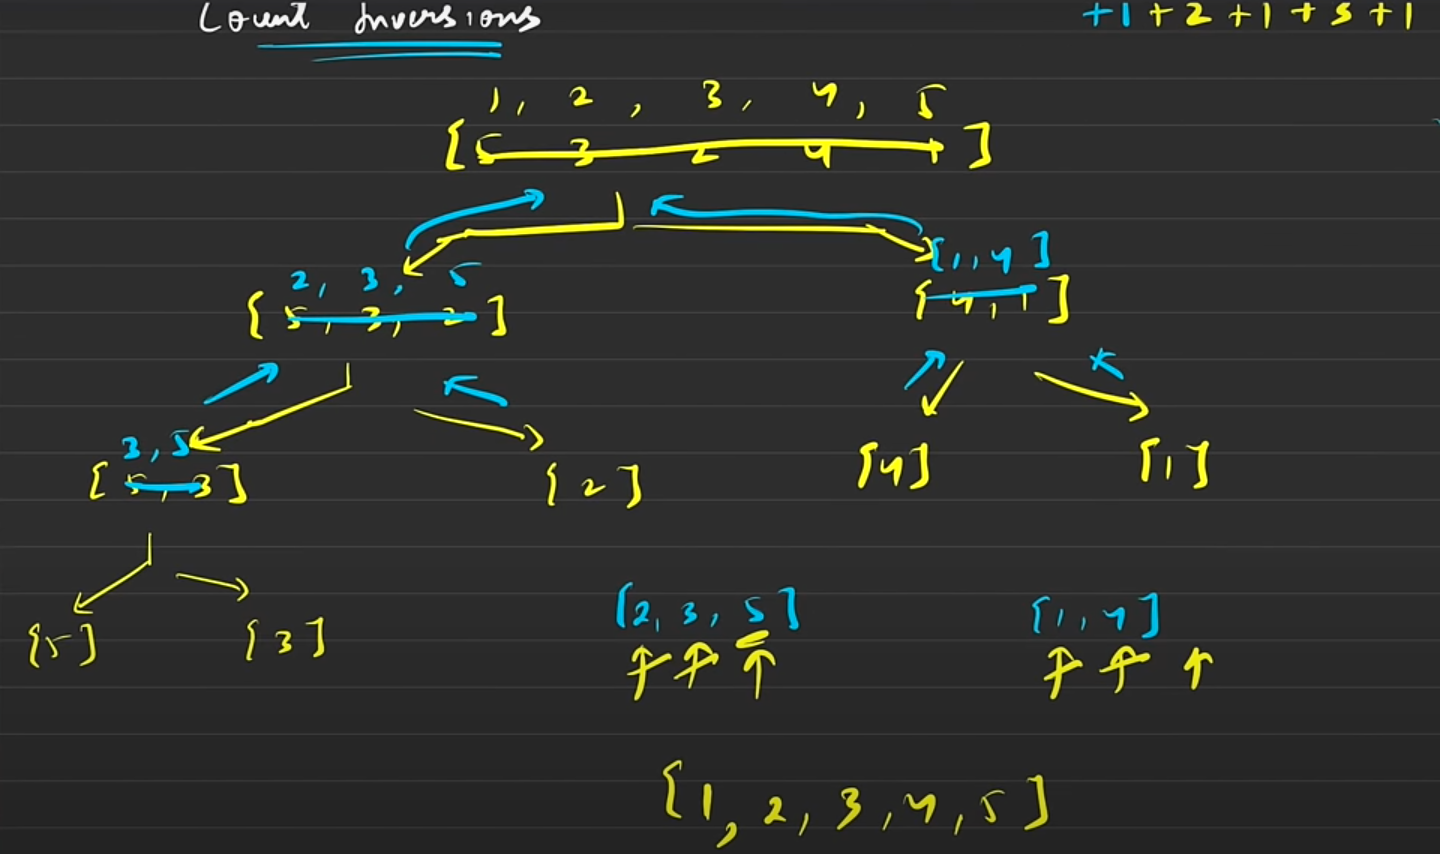 Count Inversions
+1 + 2 + 1 + 3 + 1
1, 2, 3, 4, 5
[5 3 2 4 1]
[1, 4]
2, 3, 5
[5, 3, 2]
[4, 1]
3, 5
[5, 3]
[2]
[4]
[1]
[2, 3, 5]
[1, 4]
[5]
[3]
[1, 2, 3, 4, 5]